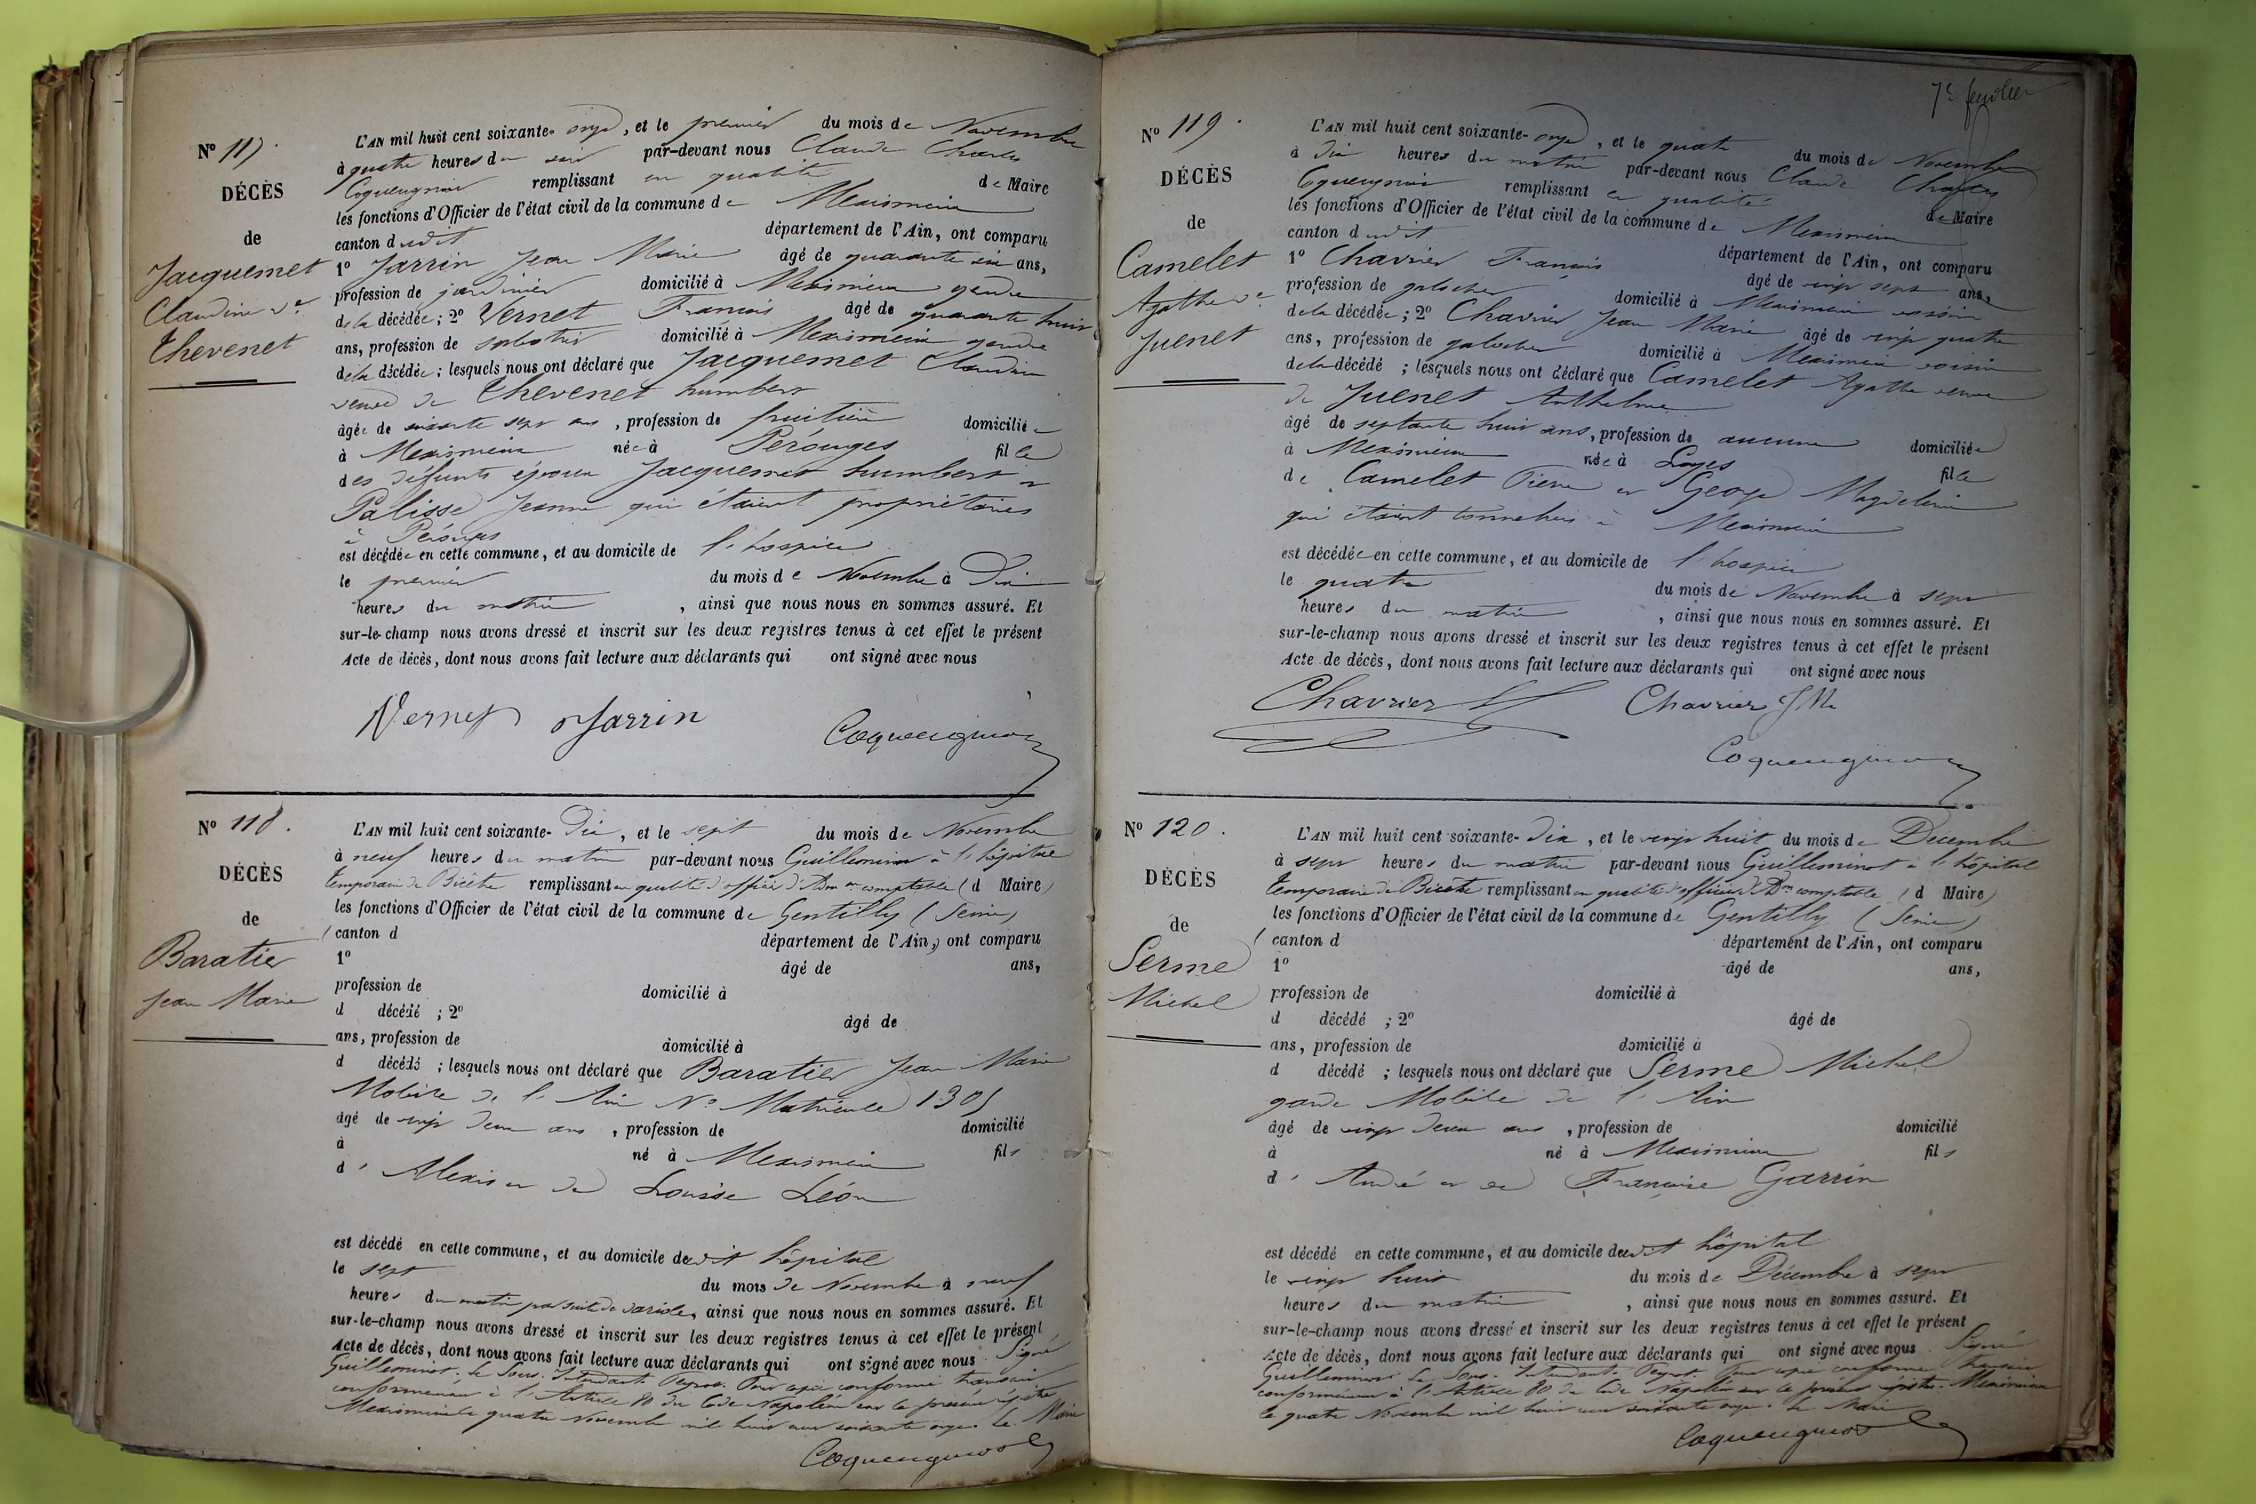 N° 117.
DÉCÈS
de
Jacquemet
Claudine Ve
Thevenet
L'AN mil huit cent soixante-onze, et le premier du mois de Novembre
à quatre heures du soir par-devant nous Claude Charles
Coqueugniot remplissant en qualité de Maire
les fonctions d'Officier de l'état civil de la commune de Meximieux
canton dudit département de l'Ain, ont comparu
1° Jarrin Jean Marie âgé de quarante six ans,
profession de jardinier domicilié à Meximieux gendre
de la décédée; 2° Vernet François âgé de quarante huit
ans, profession de sabotier domicilié à Meximieux gendre
de la décédée; lesquels nous ont déclaré que Jacquemet Claudine
veuve de Thevenet humbert
âgée de soixante sept ans, profession de fruitière domiciliée
à Meximieux née à Pérouges fille
des défunts époux Jacquemet humbert et
Palisse Jeanne qui étaient propriétaires
à Pérouges
est décédée en cette commune, et au domicile de l'hospice
le premier du mois de Novembre à Dix
heures du matin, ainsi que nous nous en sommes assuré. Et
sur-le-champ nous avons dressé et inscrit sur les deux registres tenus à cet effet le présent
Acte de décès, dont nous avons fait lecture aux déclarants qui ont signé avec nous
Vernet Jarrin
Coqueugniot
N° 118.
DÉCÈS
de
Baratier
Jean Marie
L'AN mil huit cent soixante-Dix, et le sept du mois de Novembre
à neuf heures du matin par-devant nous Guilleminot à l'hôpital
temporaire de Bicêtre remplissant en qualité d'officier d'Adm on comptable (d Maire)
les fonctions d'Officier de l'état civil de la commune de Gentilly (Seine)
(canton d département de l'Ain,) ont comparu
1° âgé de ans,
profession de domicilié à
d décédé ; 2° âgé de
ans, profession de domicilié à
d décédé ; lesquels nous ont déclaré que Baratier Jean Marie
Mobile de l'Ain N° Matricule 1305
âgé de vingt deux ans, profession de domicilié
à né à Meximieux fils
d'Alexis et de Louise Léon
est décédé en cette commune, et au domicile dudit hôpital
le sept du mois de Novembre à neuf
heures du matin par suite de variole, ainsi que nous nous en sommes assuré. Et
sur-le-champ nous avons dressé et inscrit sur les deux registres tenus à cet effet le présent
Acte de décès, dont nous avons fait lecture aux déclarants qui ont signé avec nous. Signé
Guilleminot. Le Sous-Intendant Peyrot. Pour copie conforme transcrit
conformément à l'Article 80 du Code Napoléon sur le présent registre
Meximieux le quatre Novembre mil huit cent soixante onze. Le Maire
Coqueugniot
7e feuillet
N° 119.
DÉCÈS
de
Camelet
Agathe Ve
Juenet
L'AN mil huit cent soixante-onze, et le quatre du mois de Novembre
à Dix heures du matin par-devant nous Claude Charles
Coqueugniot remplissant en qualité de Maire
les fonctions d'Officier de l'état civil de la commune de Meximieux
canton dudit département de l'Ain, ont comparu
1° Chavrier François âgé de vingt sept ans,
profession de galocher domicilié à Meximieux voisin
de la décédée; 2° Chavrier Jean Marie âgé de vingt quatre
ans, profession de galocher domicilié à Meximieux voisin
de la décédé ; lesquels nous ont déclaré que Camelet Agathe veuve
de Juenet Anthelme
âgé de septante huit ans, profession de aucune domiciliée
à Meximieux née à Loyes fille
de Camelet Pierre et George Magdeleine
qui étaient tonneliers à Meximieux
est décédée en cette commune, et au domicile de l'hospice
le quatre du mois de Novembre à sept
heures du matin, ainsi que nous nous en sommes assuré. Et
sur-le-champ nous avons dressé et inscrit sur les deux registres tenus à cet effet le présent
Acte de décès, dont nous avons fait lecture aux déclarants qui ont signé avec nous
Chavrier Chavrier J M
Coqueugniot
N° 120.
DÉCÈS
de
Serme
Michel
L'AN mil huit cent soixante-dix, et le vingt huit du mois de Décembre
à sept heures du matin par-devant nous Guilleminot à l'hôpital
temporaire de Bicêtre remplissant en qualité d'officier d'Adm on comptable (d Maire)
les fonctions d'Officier de l'état civil de la commune de Gentilly (Seine)
(canton d département de l'Ain, ont comparu
1° âgé de ans,
profession de domicilié à
d décédé ; 2° âgé de
ans, profession de domicilié à
d décédé ; lesquels nous ont déclaré que Serme Michel
garde Mobile de l'Ain
âgé de vingt deux ans, profession de domicilié
à né à Meximieux fils
d'André et de Françoise Garrin
est décédé en cette commune, et au domicile dudit hôpital
le vingt huit du mois de Décembre à sept
heures du matin, ainsi que nous nous en sommes assuré. Et
sur-le-champ nous avons dressé et inscrit sur les deux registres tenus à cet effet le présent
Acte de décès, dont nous avons fait lecture aux déclarants qui ont signé avec nous. Signé
Guilleminot Le Sous-Intendant Peyrot. Pour copie conforme transcrit
conformément à l'Article 80 du Code Napoléon sur le présent registre. Meximieux
le quatre Novembre mil huit cent soixante onze. Le Maire
Coqueugniot